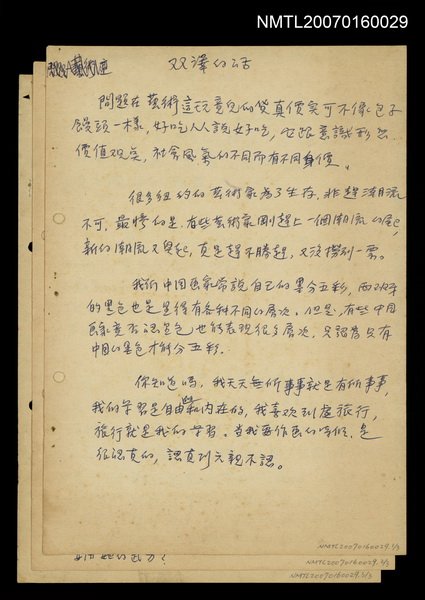 NMTL20070160029
双澤的話
問題在藝術這玩意兒的貨真價实可不像包子
饅頭一樣，好吃人人說好吃，它跟意識形态
價值观念，社会風氣的不同而有不同身價。
很多紐約的藝術家為了生存，非趕潮流
不可，最慘的是，有些藝術家剛趕上一個潮流
新的潮流又興起，真是趕不勝趕，又沒撈到一票。
我們中国画家常說自己的墨分五彩，而西洋
的黑色也是呈得有各種不同的層次。但是，有些中国
画家竟否認黑色也能表現很多層次，只認為只有
中国的墨色才能分五彩。
你知道嗎，我天天無所事事就是有所事事，
我們学習是自由無內在的，我喜欢到處旅行，
旅行就是我的学習。当我要作画的時候，是
很認真的，認真到六親不認。
NMTL20070160029.1/3
NMTL20070160029.2/3
NMTL20070160029.3/3